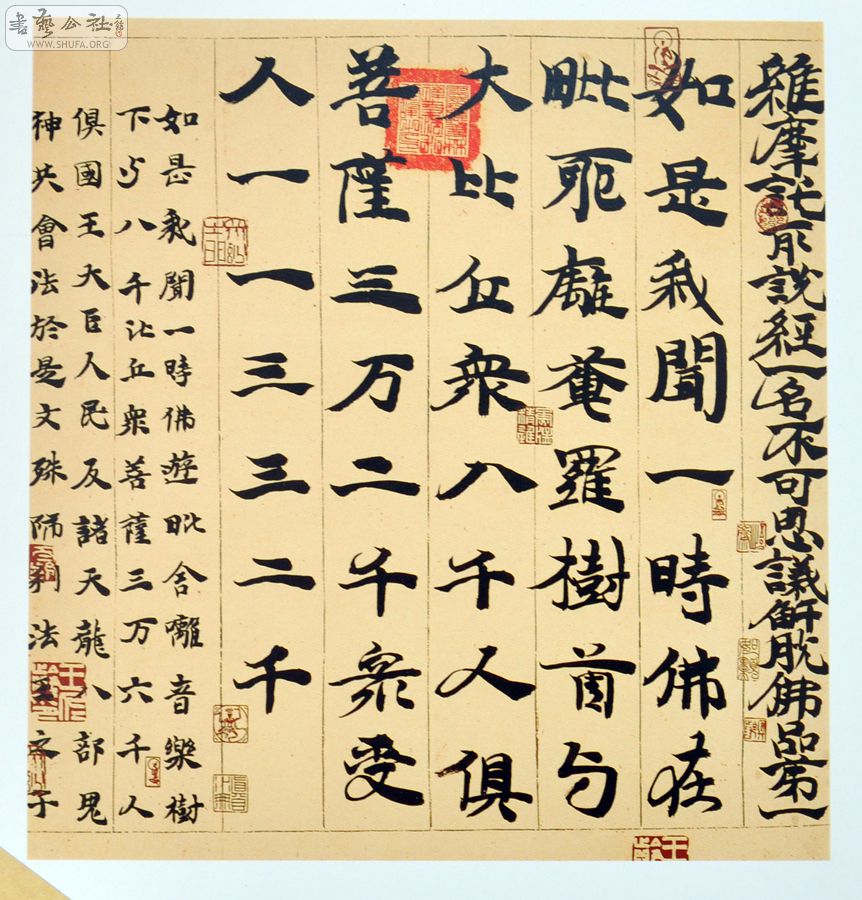 書藝公社
WWW.SHUFA.ORG
維摩詰所說經一名不可思議解脫佛品第一
如是我聞一時佛在
毗耶離菴羅樹薗与
大比丘衆八千人俱
菩薩三万二千衆受
人一一三三二千
如是我聞一時佛遊毗舍離音樂樹
下与八千比丘衆菩薩三万六千人
俱國王大臣人民及諸天龍八部鬼
神共會法於是文殊師利法王之子